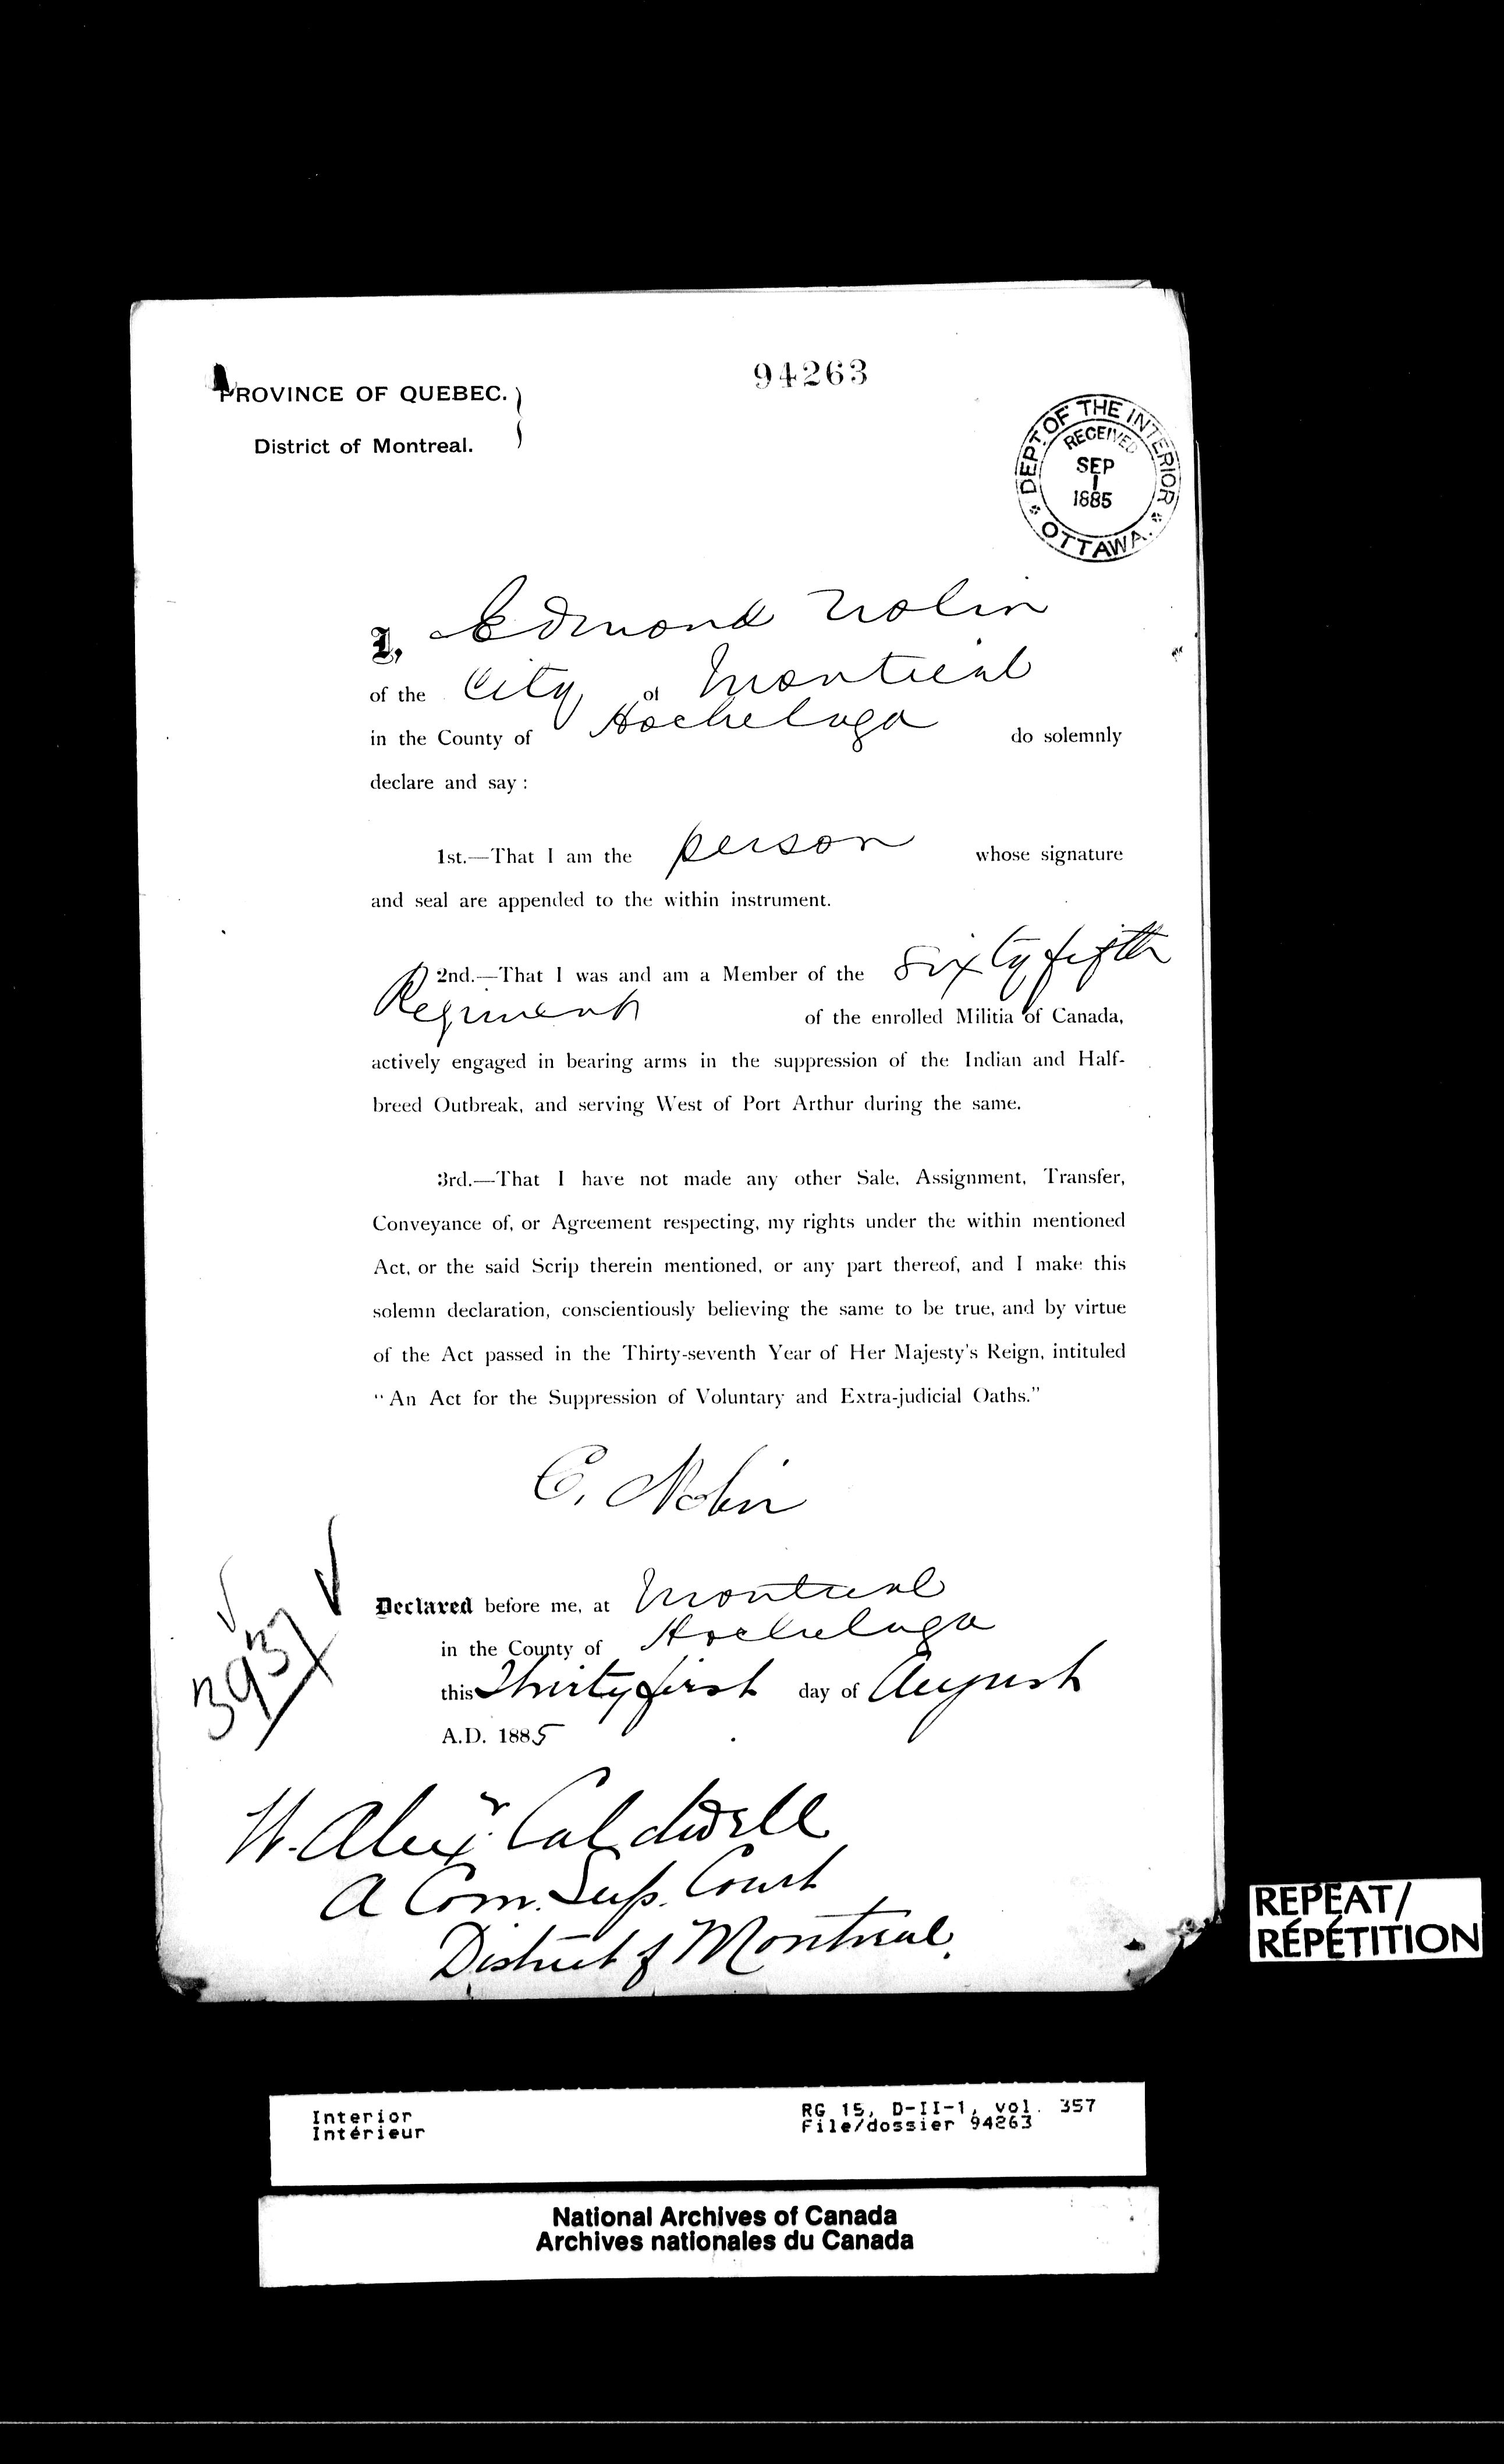 94263
PROVINCE OF QUEBEC.
District of Montreal.
DEPT. OF THE INTERIOR
RECEIVED
SEP
1
1885
OTTAWA.
I, Edmond Nolin
of the City of Montreal
in the County of Hochelaga do solemnly
declare and say :
1st.—That I am the person whose signature
and seal are appended to the within instrument.
2nd.—That I was and am a Member of the Sixty fifth
Regiment of the enrolled Militia of Canada,
actively engaged in bearing arms in the suppression of the Indian and Half-
breed Outbreak, and serving West of Port Arthur during the same.
3rd.—That I have not made any other Sale, Assignment, Transfer,
Conveyance of, or Agreement respecting, my rights under the within mentioned
Act, or the said Scrip therein mentioned, or any part thereof, and I make this
solemn declaration, conscientiously believing the same to be true, and by virtue
of the Act passed in the Thirty-seventh Year of Her Majesty's Reign, intituled
"An Act for the Suppression of Voluntary and Extra-judicial Oaths."
E. Nolin
Declared before me, at Montreal
in the County of Hochelaga
this Thirty first day of August
A.D. 1885
3937
W. Alexr. Caldwell
A Com. Sup. Court
District of Montreal.
REPEAT/
RÉPÉTITION
Interior
Intérieur
RG 15, D-II-1, vol. 357
File/dossier 94263
National Archives of Canada
Archives nationales du Canada